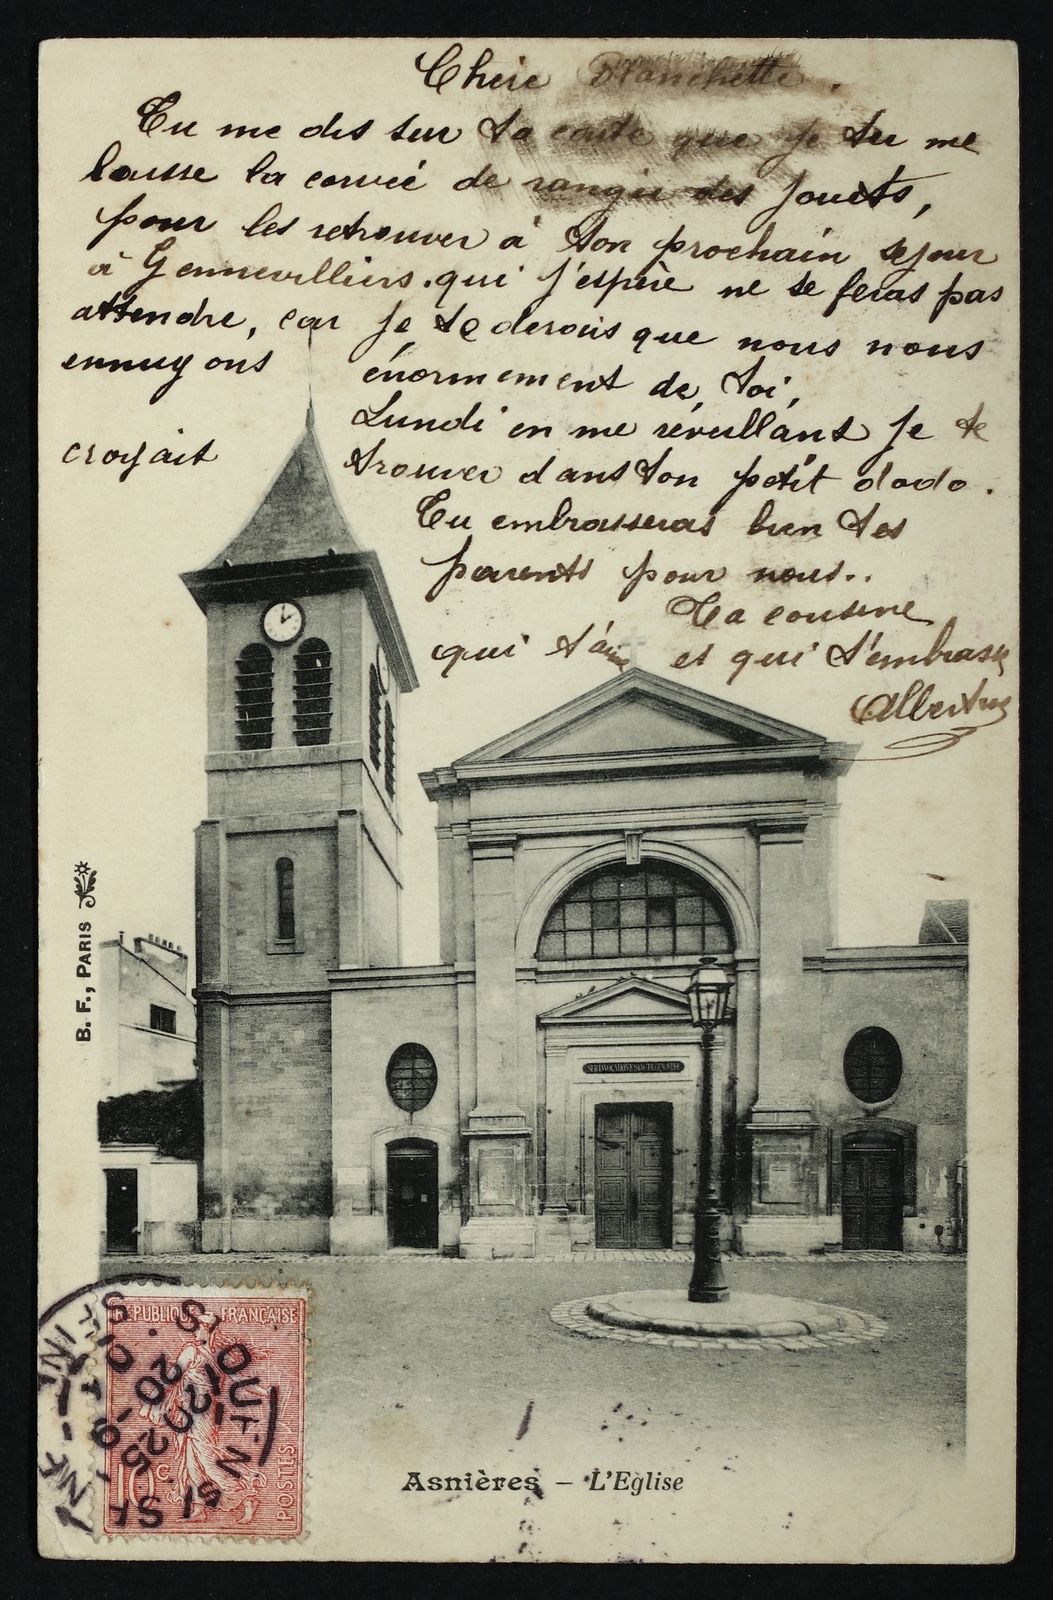 Chère Blanchette.
Tu me dis sur ta carte que je tu me
laisse la corvée de ranger des jouets,
pour les retrouver à ton prochain sejour
à Gennevilliers. qui j'espère ne se feras pas
attendre, car je te derois que nous nous
ennuyons énormement de, toi,
Lundi en me réveillant je te
croyait trouver dans ton petit dodo.
Tu embrasseras bien tes
parents pour nous..
Ta cousine
qui t'aime et qui t'embrasse
Albertine
B. F., PARIS
SUB INVOCATIONE SANCTÆ GENOVEFÆ
RÉPUBLIQUE FRANÇAISE
10 c.
POSTES
ST OUEN S/ S
Asnières – L'Eglise